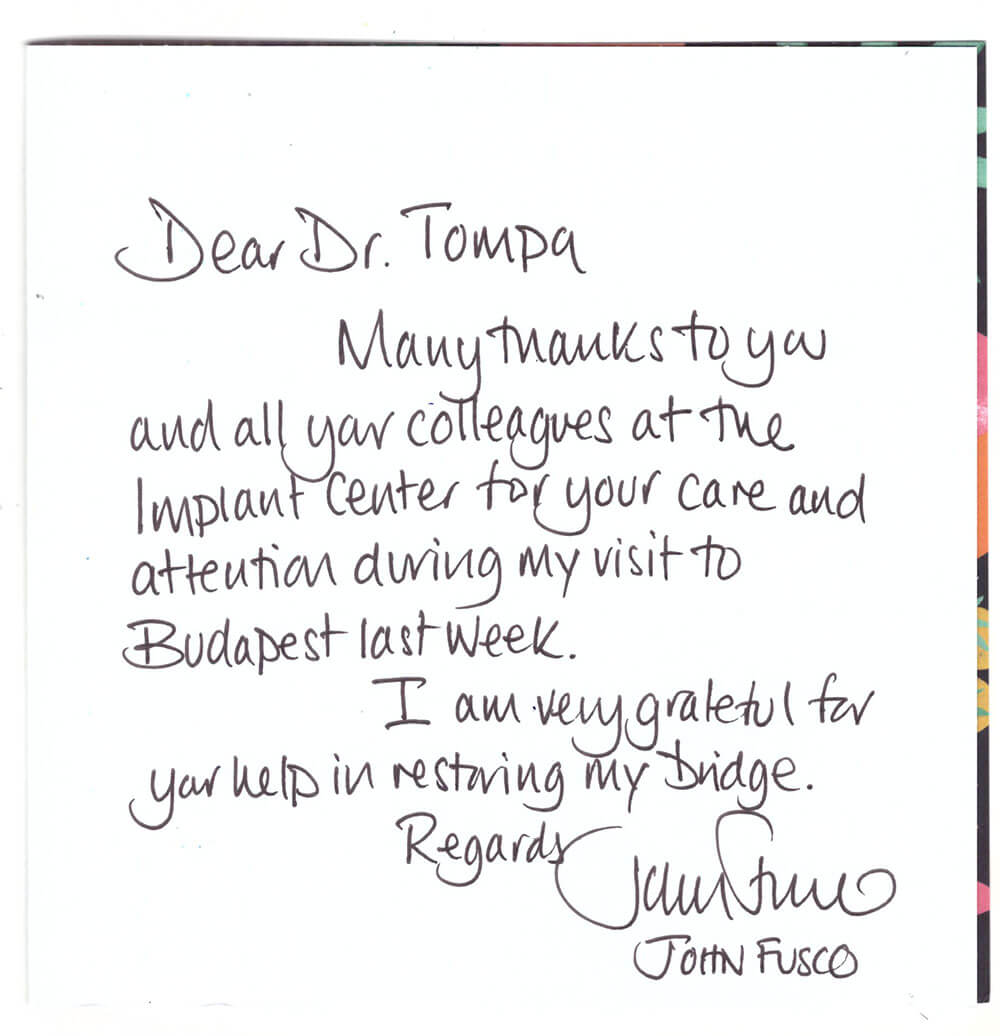 Dear Dr. Tompa
Many thanks to you
and all your colleagues at the
Implant Center for your care and
attention during my visit to
Budapest last week.
I am very grateful for
your help in restoring my bridge.
Regards John Fusco
JOHN FUSCO